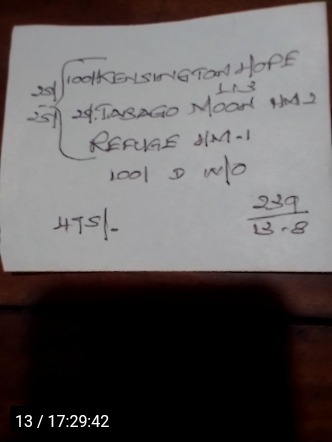 25/ 100/ KENSINGTON HOPE
LL3
25/ 25/. TABAGO MOON HM-2
REFUGE HM-1
100/ D W/O
475/-
239
13-8
13 / 17:29:42